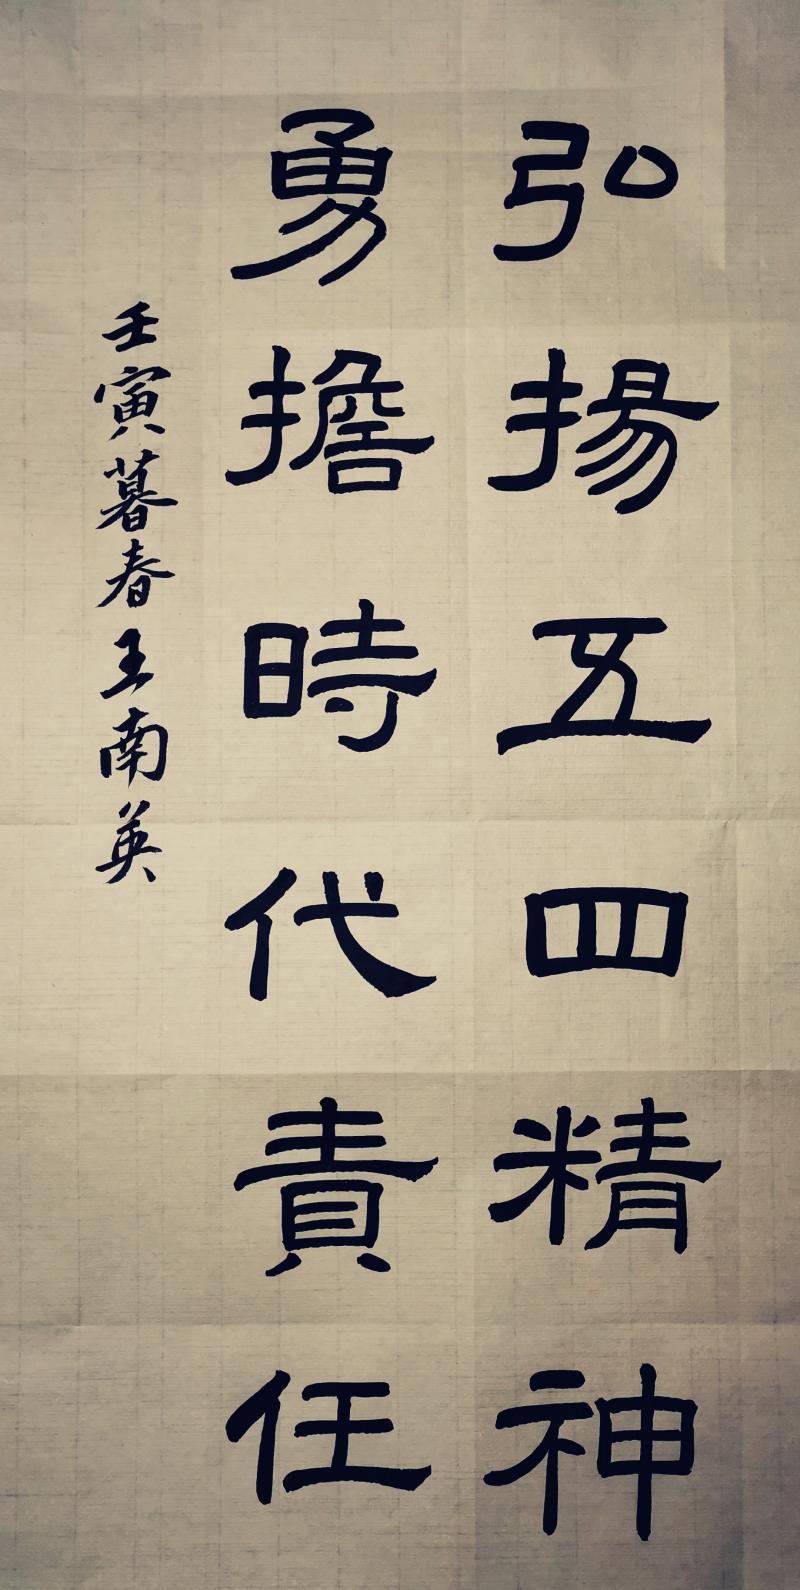 弘揚五四精神
勇擔時代責任
壬寅暮春王南英